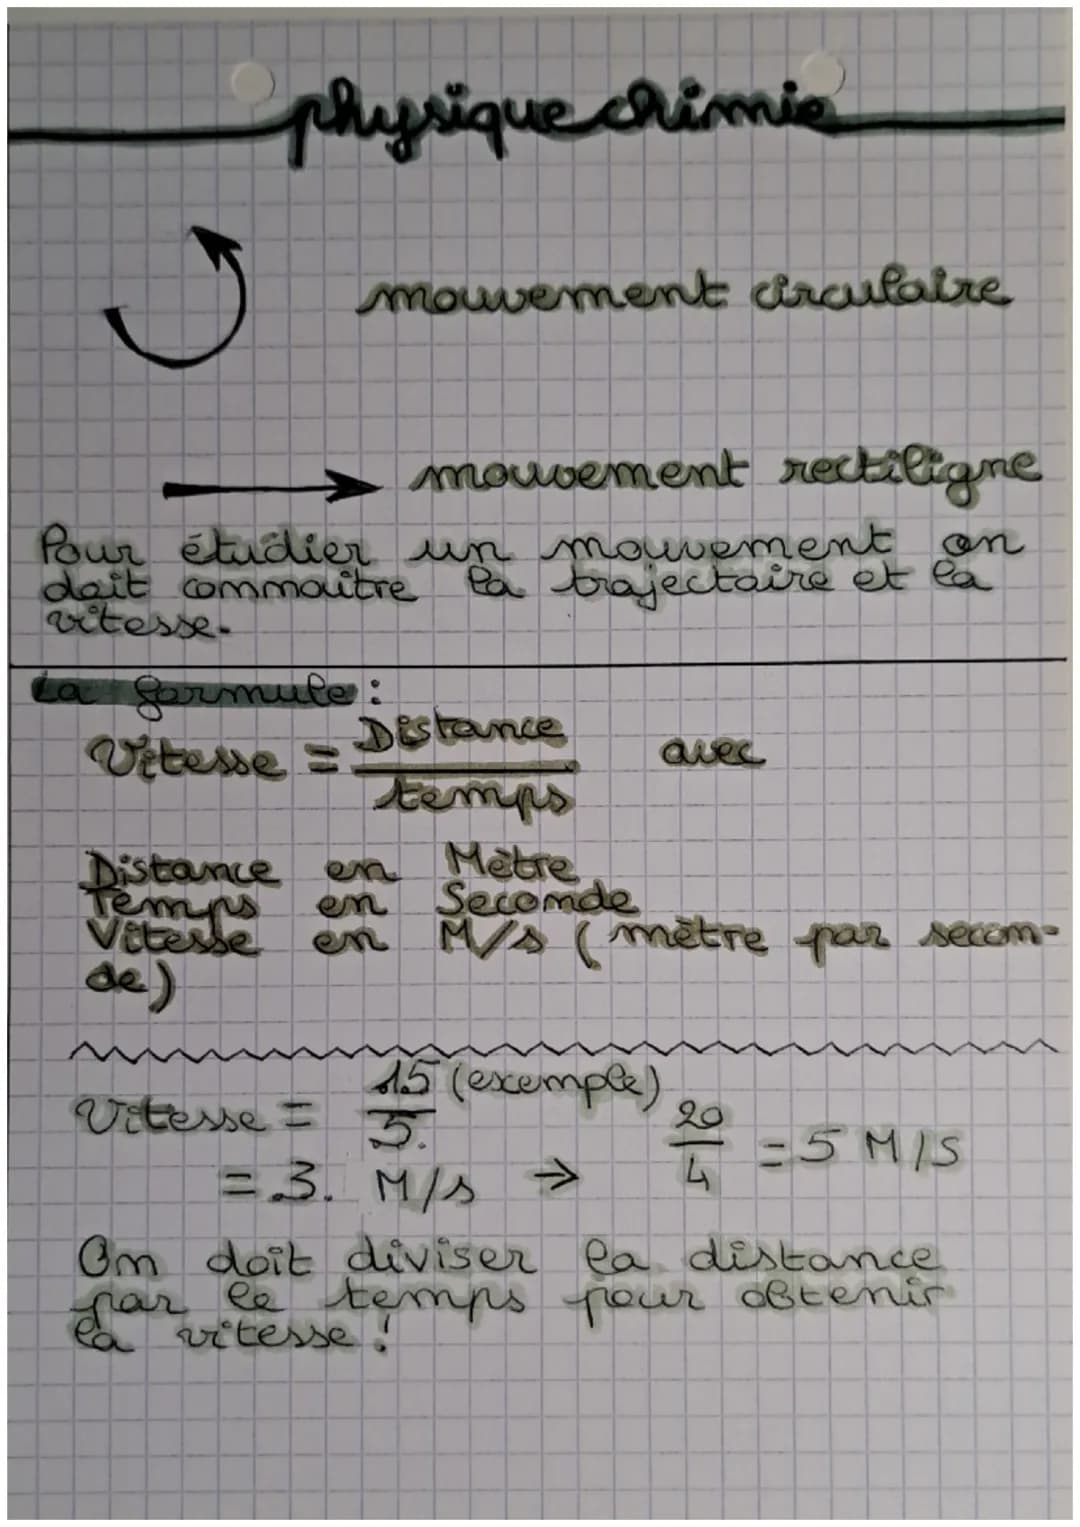 physique chimie
mouvement circulaire
mouvement rectiligne
Pour étudier un mouvement on
doit connaître la trajectoire et la
vitesse.
La formule :
Vitesse = Distance / temps avec
Distance en Mètre
Temps en Seconde
Vitesse en M/s ( mètre par secon-
de)
Vitesse = 15/5. (exemple)
= 3. M/s → 20/4 = 5 M/S
On doit diviser la distance
par le temps pour obtenir
la vitesse !